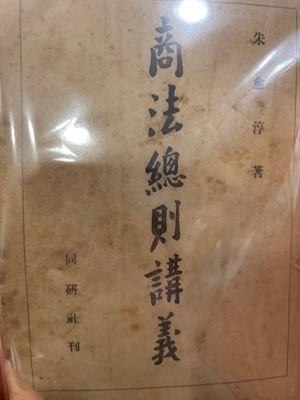 朱愈淳 著
商法總則講義
同研社刊